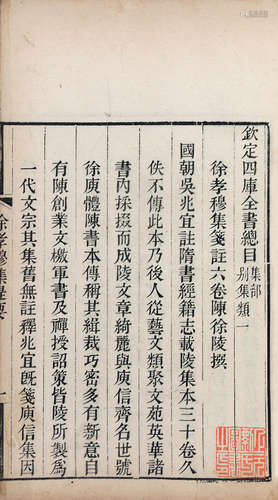 欽定四庫全書總目集部別集類一
徐孝穆集箋註六卷陳徐陵撰
國朝吳兆宜註隋書經籍志載陵集本三十卷久
佚不傳此本乃後人從藝文類聚文苑英華諸
書內採掇而成陵文章綺麗與庾信齊名世號
徐庾體陳書本傳稱其緝裁巧密多有新意自
有陳創業文檄軍書及禪授詔策皆陵所製為
一代文宗其集舊無註釋兆宜既箋庾信集因
徐孝穆集提要
一